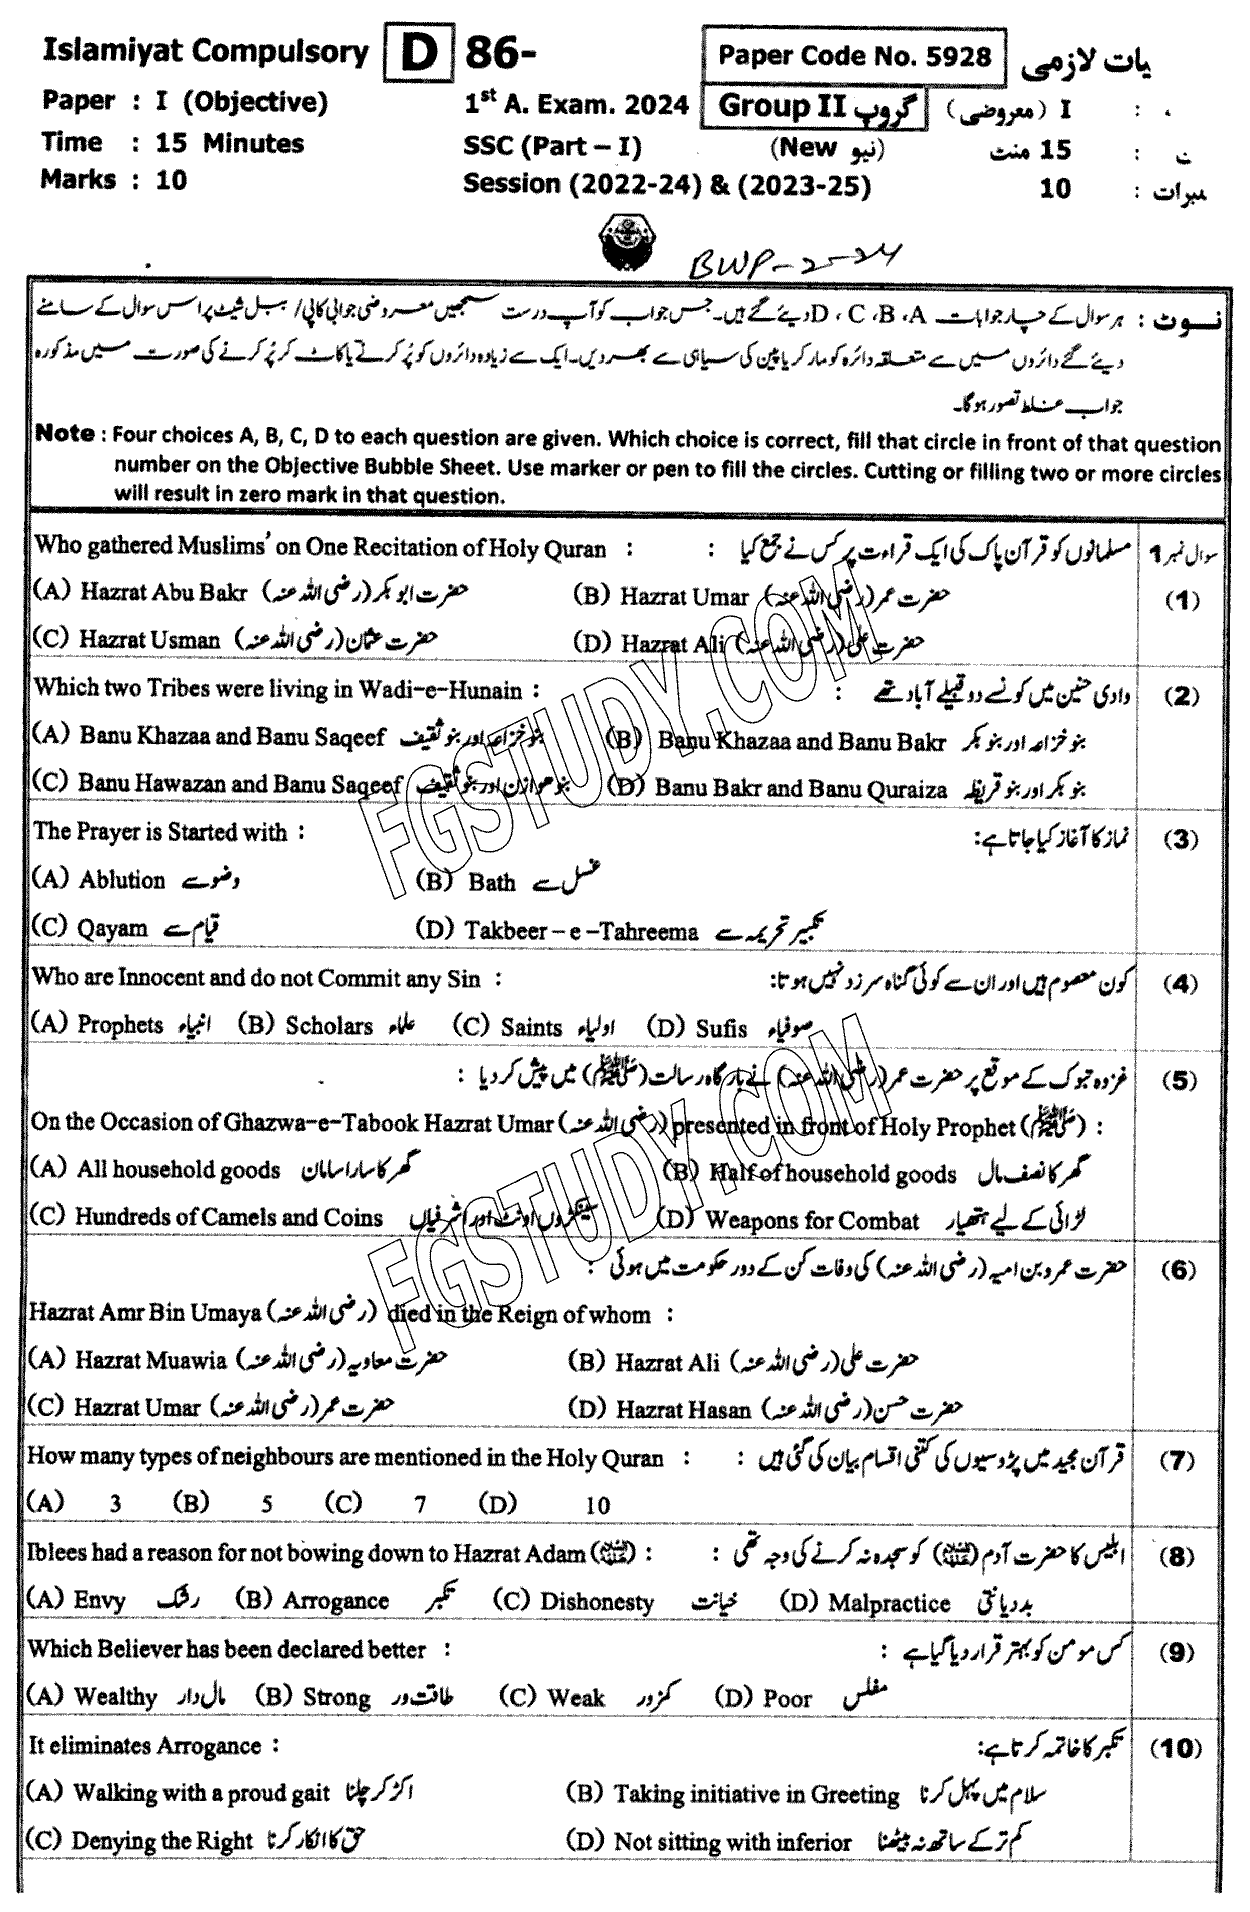 Islamiyat Compulsory D 86- Paper Code No. 5928 یات لازمی
Paper : I (Objective) 1st A. Exam. 2024 Group II گروپ I (معروضی) :
Time : 15 Minutes SSC (Part – I) (New نیو) 15 منٹ :
Marks : 10 Session (2022-24) & (2023-25) 10 :
BWP-2-24
نوٹ : ہر سوال کے چار جوابات D ، C ،B ،A دیئے گئے ہیں۔ جس جواب کو آپ درست سمجھیں معروضی جوابی کاپی/ ببل شیٹ پر اس سوال کے سامنے
دیئے گئے دائروں میں سے متعلقہ دائرہ کو مارکر یا پین کی سیاہی سے بھر دیں۔ ایک سے زیادہ دائروں کو پُر کرنے یا کاٹ کر پُر کرنے کی صورت میں مذکورہ
جواب غلط تصور ہوگا۔
Note : Four choices A, B, C, D to each question are given. Which choice is correct, fill that circle in front of that question
number on the Objective Bubble Sheet. Use marker or pen to fill the circles. Cutting or filling two or more circles
will result in zero mark in that question.
Who gathered Muslims’ on One Recitation of Holy Quran : مسلمانوں کو قرآن پاک کی ایک قراءت پر کس نے جمع کیا : سوال نمبر 1
(A) Hazrat Abu Bakr حضرت ابو بکر (رضی اللہ عنہ) (B) Hazrat Umar حضرت عمر (رضی اللہ عنہ) (1)
(C) Hazrat Usman حضرت عثمان (رضی اللہ عنہ) (D) Hazrat Ali حضرت علی (رضی اللہ عنہ)
Which two Tribes were living in Wadi-e-Hunain : وادی حنین میں کونسے دو قبیلے آباد تھے : (2)
(A) Banu Khazaa and Banu Saqeef بنو خزاعہ اور بنو ثقیف (B) Banu Khazaa and Banu Bakr بنو خزاعہ اور بنو بکر
(C) Banu Hawazan and Banu Saqeef بنو ھوازن اور بنو ثقیف (D) Banu Bakr and Banu Quraiza بنو بکر اور بنو قریظہ
The Prayer is Started with : نماز کا آغاز کیا جاتا ہے: (3)
(A) Ablution وضو سے (B) Bath غسل سے
(C) Qayam قیام سے (D) Takbeer – e –Tahreema تکبیر تحریمہ سے
Who are Innocent and do not Commit any Sin : کون معصوم ہیں اور ان سے کوئی گناہ سرزد نہیں ہوتا: (4)
(A) Prophets انبیاء (B) Scholars علماء (C) Saints اولیاء (D) Sufis صوفیاء
غزوہ تبوک کے موقع پر حضرت عمر (رضی اللہ عنہ) نے بارگاہ رسالت (ﷺ) میں پیش کر دیا : (5)
On the Occasion of Ghazwa-e-Tabook Hazrat Umar (رضی اللہ عنہ) presented in front of Holy Prophet (ﷺ) :
(A) All household goods گھر کا سارا سامان (B) Half of household goods گھر کا نصف مال
(C) Hundreds of Camels and Coins سینکڑوں اونٹ اور اشرفیاں (D) Weapons for Combat لڑائی کے لیے ہتھیار
حضرت عمرو بن امیہ (رضی اللہ عنہ) کی وفات کن کے دور حکومت میں ہوئی : (6)
Hazrat Amr Bin Umaya (رضی اللہ عنہ) died in the Reign of whom :
(A) Hazrat Muawia حضرت معاویہ (رضی اللہ عنہ) (B) Hazrat Ali حضرت علی (رضی اللہ عنہ)
(C) Hazrat Umar حضرت عمر (رضی اللہ عنہ) (D) Hazrat Hasan حضرت حسن (رضی اللہ عنہ)
How many types of neighbours are mentioned in the Holy Quran : قرآن مجید میں پڑوسیوں کی کتنی اقسام بیان کی گئی ہیں : (7)
(A) 3 (B) 5 (C) 7 (D) 10
Iblees had a reason for not bowing down to Hazrat Adam (علیہ السلام) : ابلیس کا حضرت آدم (علیہ السلام) کو سجدہ نہ کرنے کی وجہ تھی : (8)
(A) Envy رشک (B) Arrogance تکبر (C) Dishonesty خیانت (D) Malpractice بددیانتی
Which Believer has been declared better : کس مومن کو بہتر قرار دیا گیا ہے : (9)
(A) Wealthy مال دار (B) Strong طاقت ور (C) Weak کمزور (D) Poor مفلس
It eliminates Arrogance : تکبر کا خاتمہ کرتا ہے: (10)
(A) Walking with a proud gait اکڑ کر چلنا (B) Taking initiative in Greeting سلام میں پہل کرنا
(C) Denying the Right حق کا انکار کرنا (D) Not sitting with inferior کم تر کے ساتھ نہ بیٹھنا
FGSTUDY.COM
FGSTUDY.COM